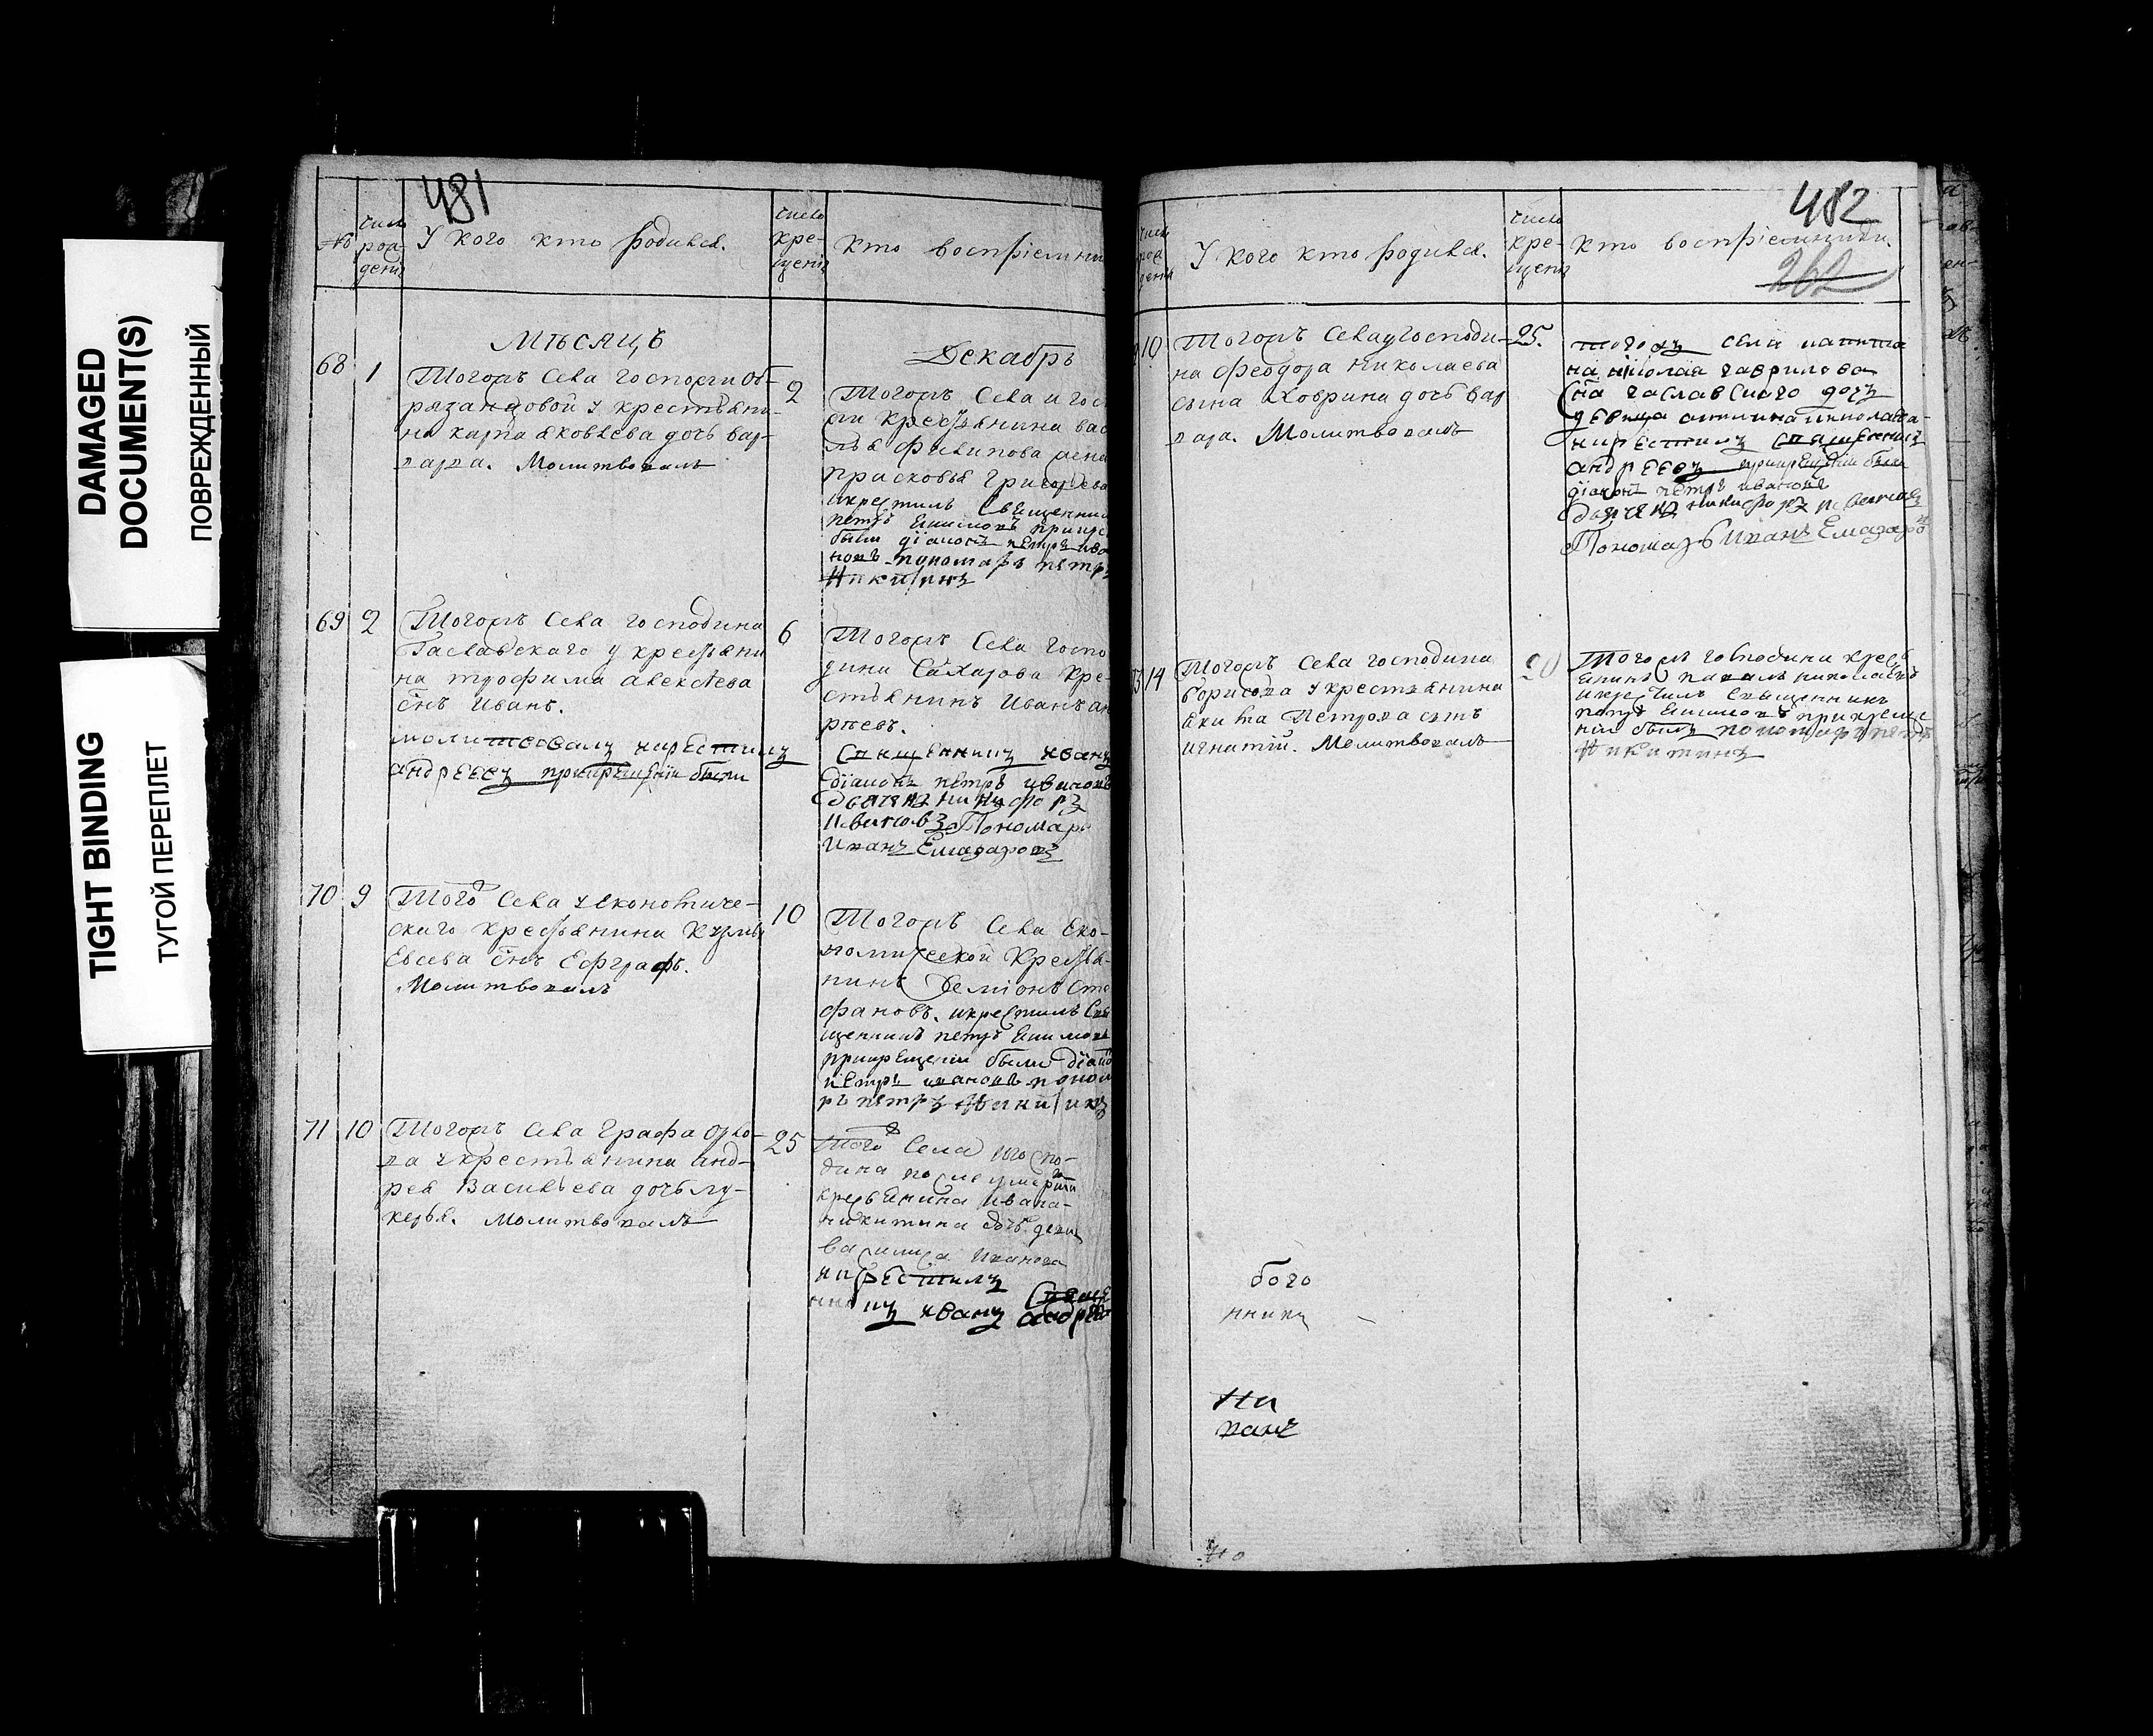 DAMAGED
DOCUMENT(S)
ПОВРЕЖДЕННЫЙ
TIGHT BINDING
ТУГОЙ ПЕРЕПЛЕТ
481
№
число
рож-
денія
У кого кто родился.
число
кре-
щенія
кто воспріемни
Мѣсяцъ
Декабрь
68
1
Тогожъ села госпожи Об-
рязанцовой у крестьяни-
на карпа яковлева дочь вар-
вара. Молитвовалъ
2
Тогожъ села и гос
жи крестьянина вас
лья филипова жена
прасковья григорьева
и крестилъ священни
петръ
были діаконъ петръ ива
новъ пономарь петръ
Никитинъ
69
2
Тогожъ села господина
Гаславскаго у крестьяни
на трофима алексѣева
снъ Иванъ.
молитвовалъ и крестилъ
андреевъ при крещеніи были
6
Тогожъ села госпо
дина Сахарова кре-
стьянинъ Иванъ ан
реевъ.
Священникъ иванъ
діаконъ петръ ивановъ
дьячекъ никифоръ
ивановъ Пономарь
Иванъ Елиазаровъ
70
9
Того села у економиче-
скаго крестьянина кузмы
Евсева снъ Евграфъ.
Молитвовалъ
10
Тогожъ села еко-
номической крестья-
нинъ Семіонъ сте
фановъ. и крестилъ свя
щенникъ петръ
при крещеніи были діако
петръ ивановъ поном
рь петръ Никитинъ
71
10
Тогожъ села графа Орло-
ва у крестьянина анд-
рея Васильева дочь лу-
керья. Молитвовалъ
25
Того села госпо-
дина
крестьянина ивана
никитина дочь девиц
василиса иванова
и крестилъ Свяще
нникъ иванъ андрее
482
число
рож
денія
У кого кто родился.
число
кре-
щенія
кто воспріемники.
262
10
Тогожъ села у господи-
на феодора николаева
сына Ховрина дочь вар
вара. Молитвовалъ
25.
тогожъ села капита
на николая гаврилова
сна гаславскаго дочь
девица николаева
и крестилъ священникъ
андреевъ при крещеніи были
діаконъ петръ ивановъ
дьячекъ никифоръ ивановъ
Пономарь Иванъ Елиазаро
73
14
Тогожъ села господина
борисова у крестьянина
Никита Петрова сынъ
игнатій. Молитвовалъ
20
Тогожъ господина кресть
янинъ павелъ николаевъ
и крестилъ священникъ
петръ при креще
ніи былъ пономарь петръ
Никитинъ
бого
нникъ
Ни
ванъ